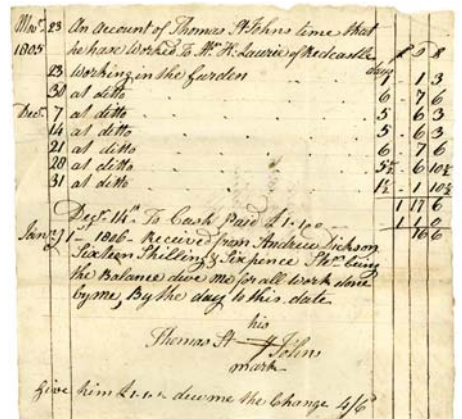 Novr. 23 An account of Thomas St Johns time that
1805 he have Worked To Wr. H. Laurie of Redcastle
days £ S D
23 Working in the Garden 1 3
30 at ditto 6 7 6
Decr. 7 at ditto 5 6 3
14 at ditto 5 6 3
21 at ditto 6 7 6
28 at ditto 5½ 6 10½
31 at ditto 1½ 1 10½
1 17 6
Decr. 14th To Cash Paid £1-1-0 1 1 0
16 6
Janry 1st 1806 Received from Andrew Dickson
Sixteen Shilling & Sixpence being
the Balance due me for all work done
by me, By the day to this date
his
Thomas St Johns
mark
Give him £1-1- due me the Change 4/6